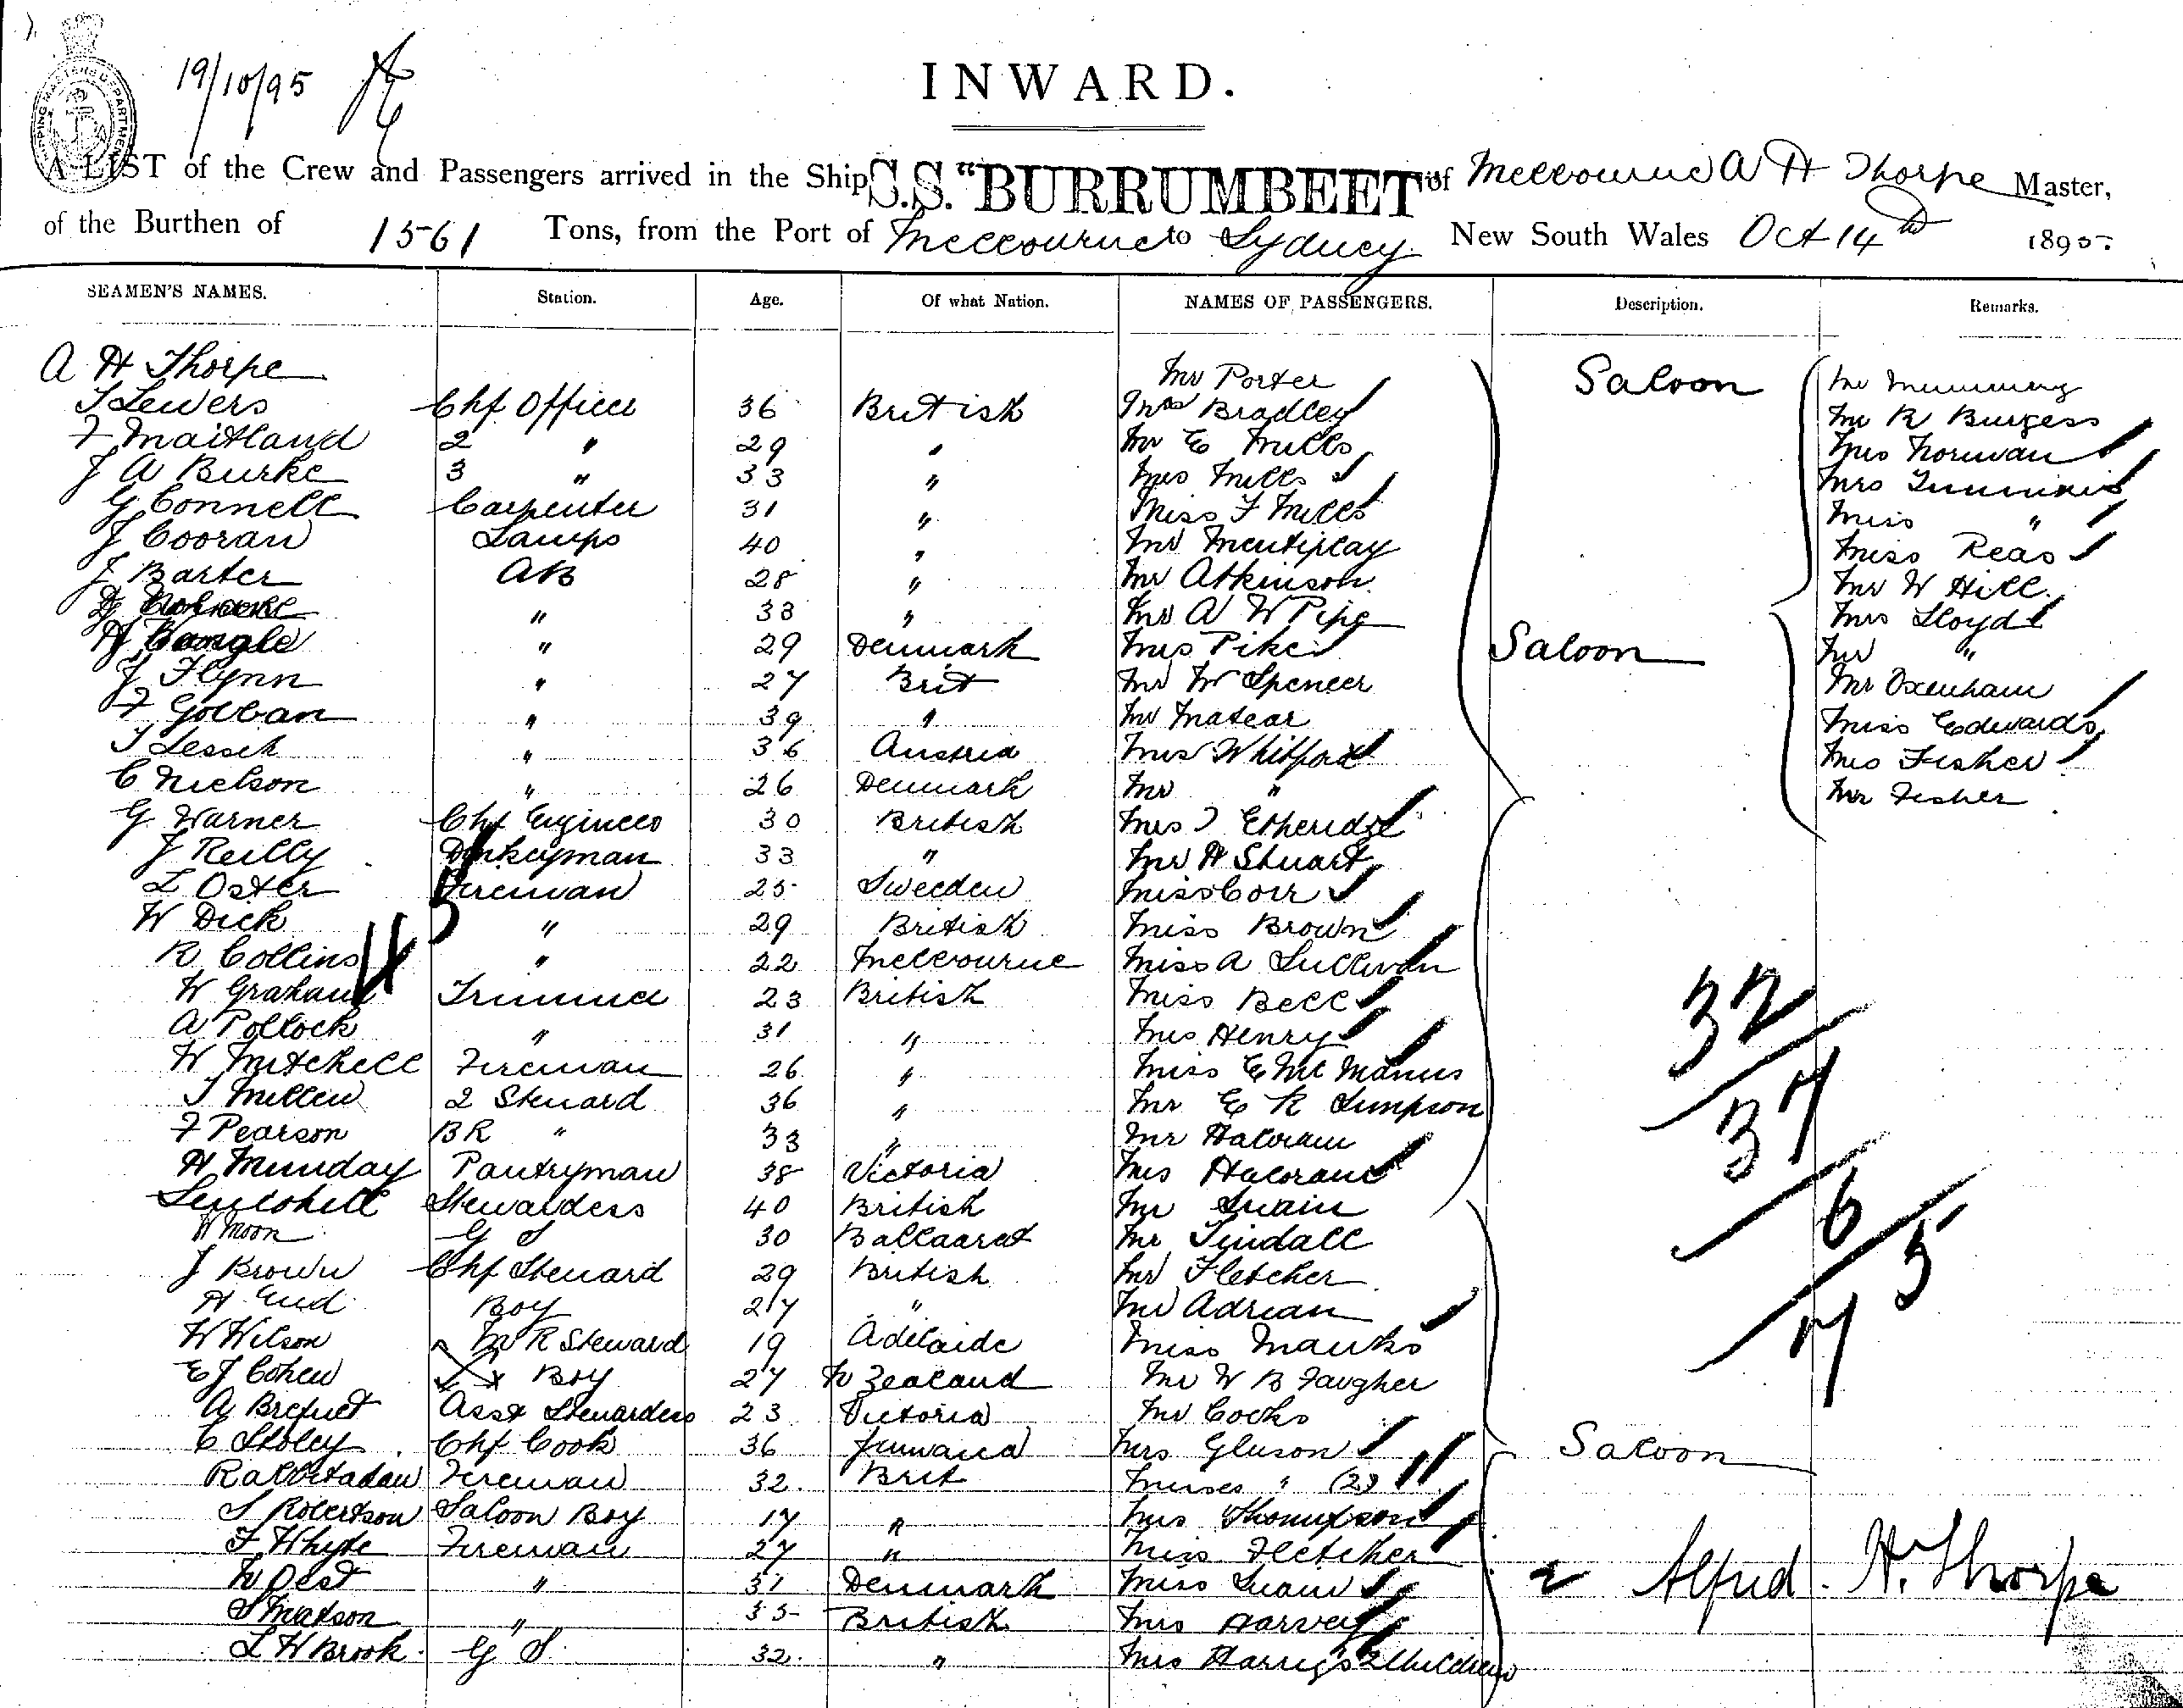 19/10/95
INWARD.
A LIST of the Crew and Passengers arrived in the Ship S.S. "BURRUMBEET" of Melbourne A H Thorpe Master,
of the Burthen of 1561 Tons, from the Port of Melbourne to Sydney New South Wales Oct 14th 1895.
SEAMEN'S NAMES. Station. Age. Of what Nation. NAMES OF PASSENGERS. Description. Remarks.
A H Thorpe Mr Porter Saloon
J Lewers Chf Officer 36 British Mrs Bradley Mr R Burgess
F Maitland 2 " 29 " Mr E Mills Mrs Norman
J A Burke 3 " 33 " Mrs Mills Mrs
G Connell Carpenter 31 " Miss F Mills Miss "
J Cooran Lamps 40 " Mr Mentiplay Miss Reas
J Barter AB 28 " Mr Atkinson Mr W Hill
" 33 " Mr A W Pipe Mrs Lloyd
" 29 Denmark Mrs Pike Saloon Mr "
J Flynn " 27 Brit Mr W Spencer Mr Oxenham
F Golban " 39 " Mr Matear Miss Edwards
J Lessek " 36 Austria Mrs Whitford Mrs Fisher
C Nielson " 26 Denmark Mr " Mr Fisher
G Warner Chf Engineer 30 British Mrs J Etheridge
J Reilly Donkeyman 33 " Mr H Stuart
L Oster Fireman 25 Sweeden Miss Corr
W Dick " 29 British Miss Brown
R Collins " 22 Melbourne Miss A Sullivan
W Graham Trimmer 23 British Miss Bell
A Pollock " 31 " Mrs Henry
W Mitchell Fireman 26 " Miss E McManus
J Millen 2 Steward 36 " Mr E R Simpson
F Pearson BR " 33 " Mr Haloran
H Munday Pantryman 38 Victoria Mrs Haloran
Stewardess 40 British Mr Swain
H Moon G S 30 Ballaarat Mr Tindall
J Brown Chf Steward 29 British Mr Fletcher
Boy 27 " Mr Adrian
W Wilson M R Steward 19 Adelaide Miss Manks
E J Cohen Boy 27 N Zealand Mr W B Faugher
A Brequet Asst Stewardess 23 Victoria Mr Cocks
C Stoley Chf Cook 36 Jamaica Mrs Gluson Saloon
Fireman 32 Brit Misses " (2)
S Robertson Saloon Boy 17 " Mrs Thompson
F Whyte Fireman 27 " Miss Fletcher
N Oest " 31 Denmark Miss Swain Alfred. H. Thorpe
S Matson " 35 British Mrs Harvey
L H Brook G S 32 " Mrs Harris 2 Children
32
37
6
5
7